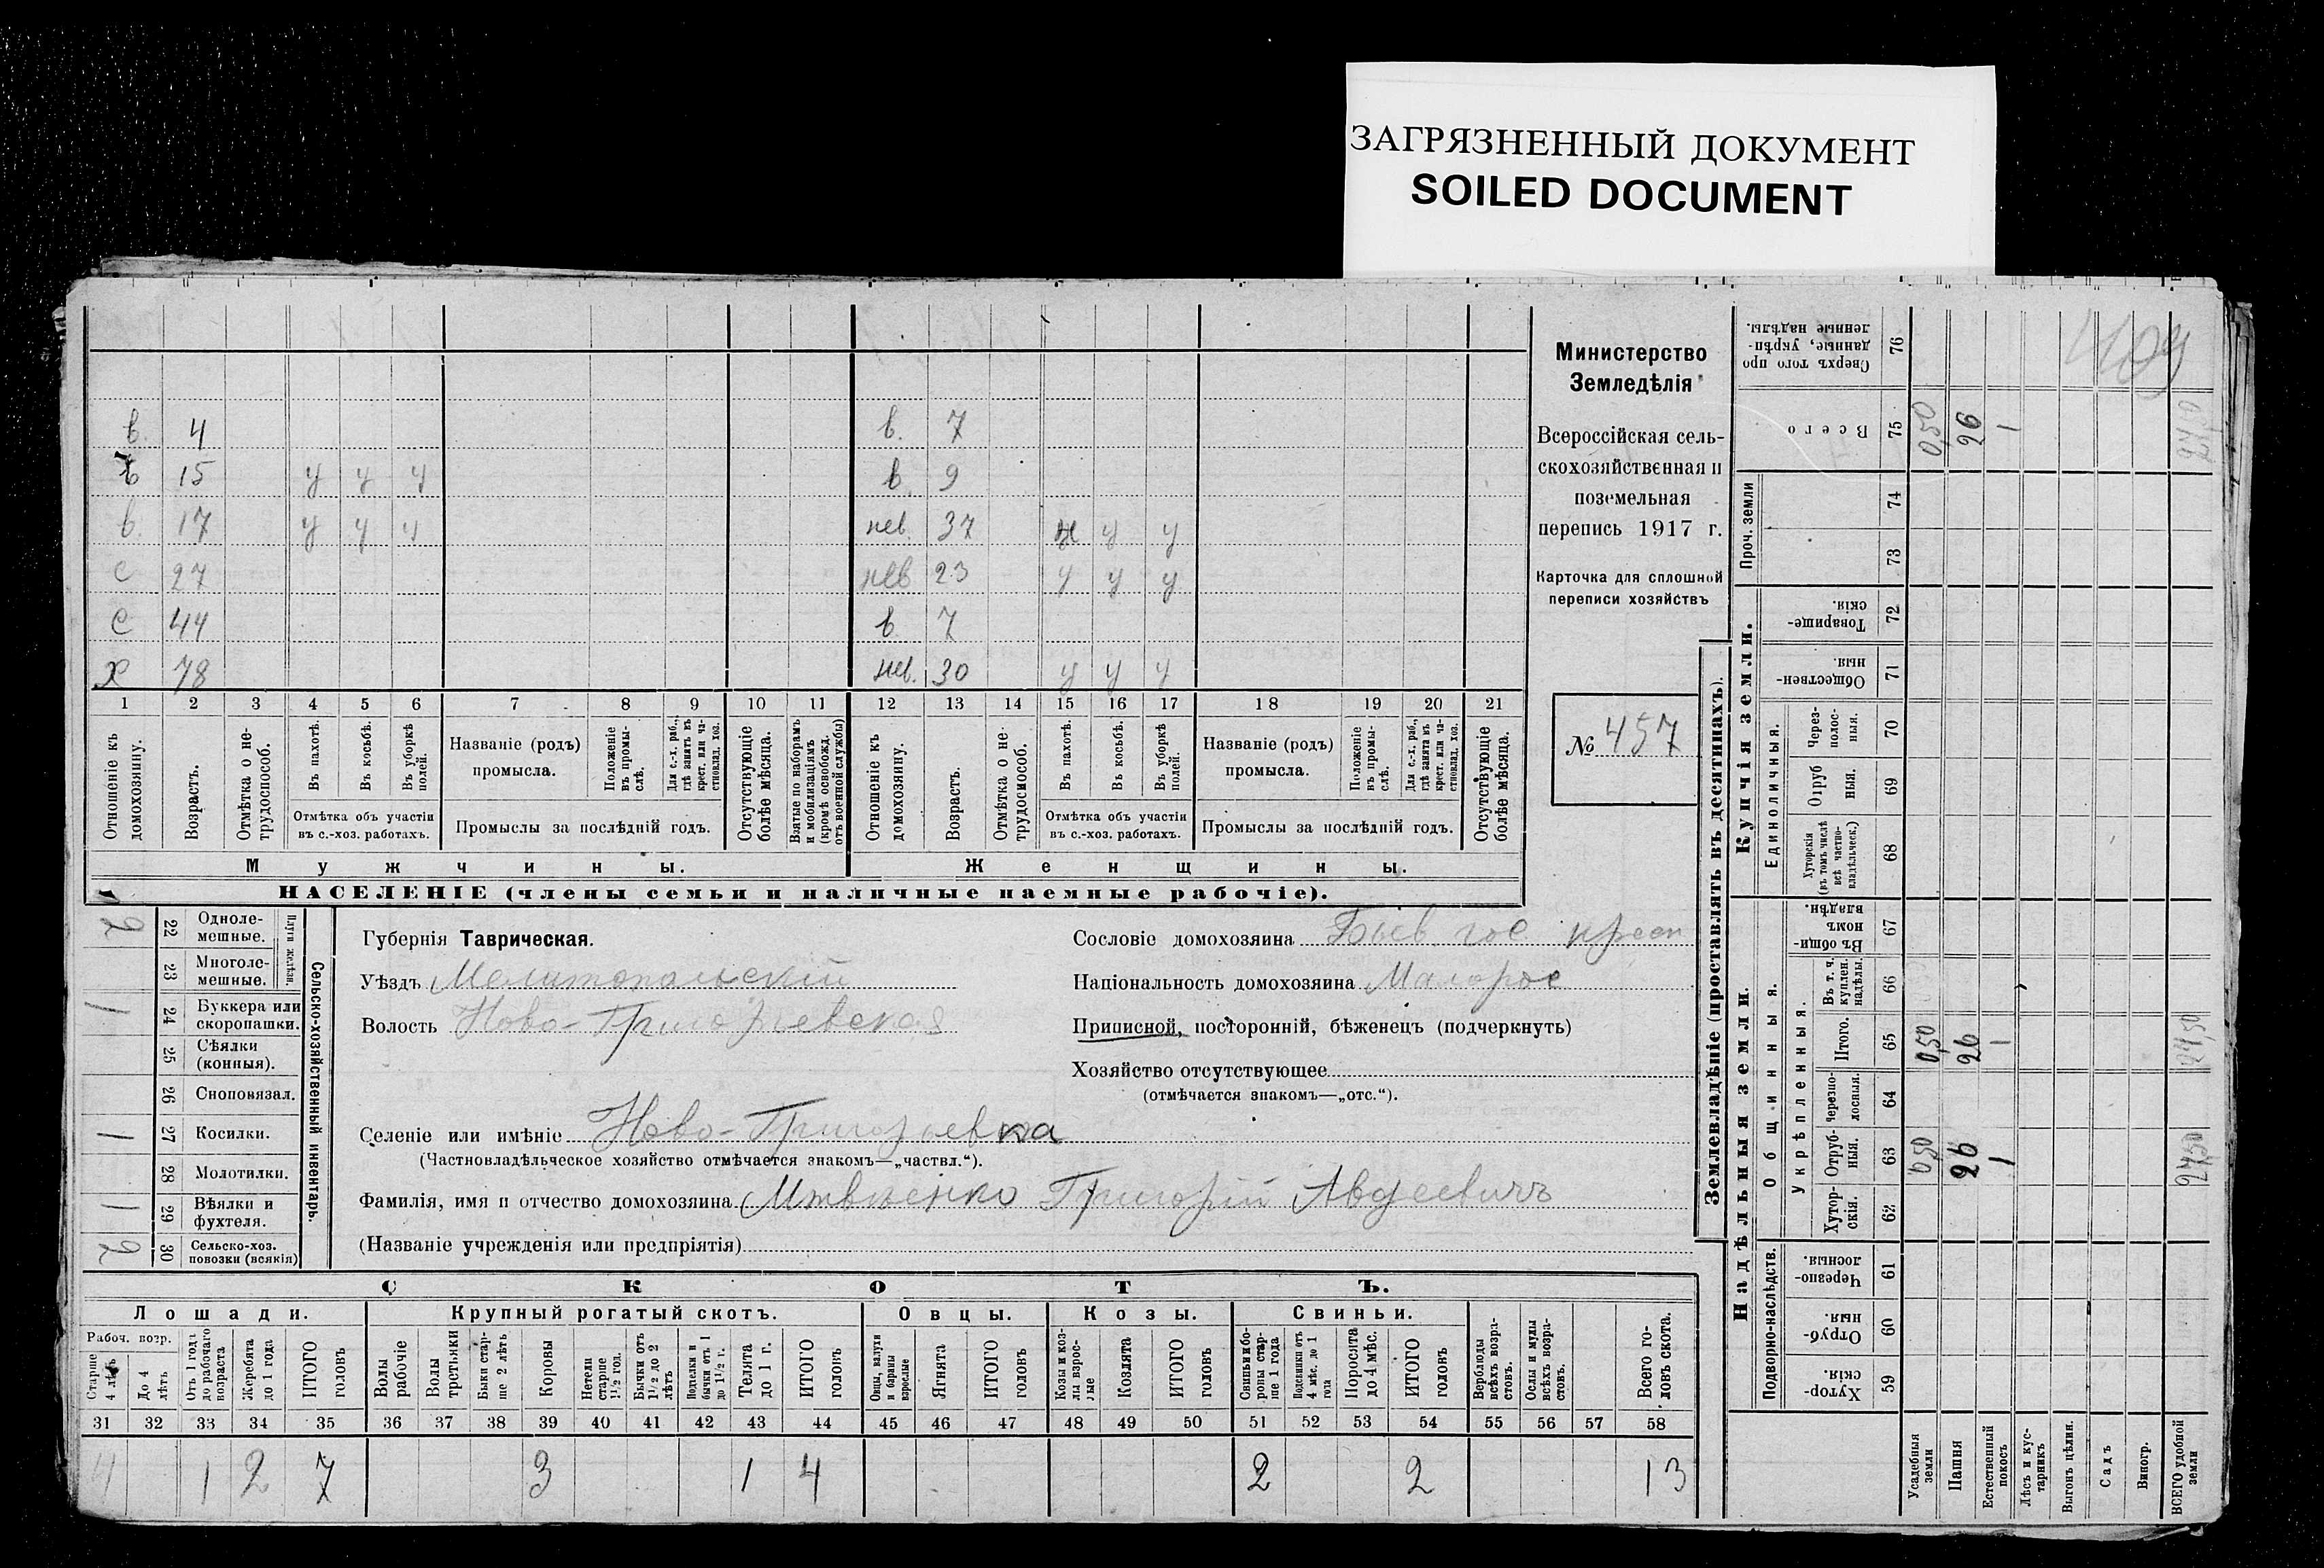 ЗАГРЯЗНЕННЫЙ ДОКУМЕНТ
SOILED DOCUMENT
в. 4 в. 7
в 15 у у у в. 9
в. 17 у у у нев. 37 у у
с 27 нев 23 у у у
с 44 в. 7
х 78 нев. 30 у у у
1 2 3 4 5 6 7 8 9 10 11 12 13 14 15 16 17 18 19 20 21
Отношеніе къ домохозяину.
Возрастъ.
Отмѣтка о нетрудоспособ.
Въ пахотѣ.
Въ косьбѣ.
Въ уборкѣ полей.
Отмѣтка объ участіи
въ с.-хоз. работахъ.
Названіе (родъ)
промысла.
Положеніе въ промыслѣ.
Для с.-х. раб., гдѣ занятъ въ крест. или частновлад. хоз.
Промыслы за послѣдній годъ.
Отсутствующіе болѣе мѣсяца.
Взятые по наборамъ и мобилизаціямъ (кромѣ освобожд. отъ военной службы)
Отношеніе къ домохозяину.
Возрастъ.
Отмѣтка о нетрудоспособ.
Въ пахотѣ.
Въ косьбѣ.
Въ уборкѣ полей.
Отмѣтка объ участіи
въ с.-хоз. работахъ.
Названіе (родъ)
промысла.
Положеніе въ промыслѣ.
Для с.-х. раб., гдѣ занята въ крест. или частновлад. хоз.
Промыслы за послѣдній годъ.
Отсутствующіе болѣе мѣсяца.
Мужчины. Женщины.
НАСЕЛЕНІЕ (члены семьи и наличные наемные рабочіе).
Министерство
Земледѣлія
Всероссійская сель-
скохозяйственная и
поземельная
перепись 1917 г.
Карточка для сплошной
переписи хозяйствъ
№ 457
Сельско-хозяйственный инвентарь.
Плуги желѣзн.
2 22 Однолемешные.
23 Многолемешные.
1 24 Буккера или скоропашки.
25 Сѣялки (конныя).
26 Сноповязал.
1 27 Косилки.
28 Молотилки.
1 29 Вѣялки и фухтеля.
2 30 Сельско-хоз. повозки (всякія)
Губернія Таврическая.
Уѣздъ Мелитопольскій
Волость Ново-Григорьевская
Селеніе или имѣніе Ново-Григорьевка
(Частновладѣльческое хозяйство отмѣчается знакомъ—„частвл.“).
Фамилія, имя и отчество домохозяина Григорій Авдеевичъ
(Названіе учрежденія или предпріятія)
Сословіе домохозяина Бывш гос крест
Національность домохозяина Малорос
Приписной, посторонній, бѣженецъ (подчеркнуть)
Хозяйство отсутствующее
(отмѣчается знакомъ—„отс.“).
СКОТЪ.
Лошади. Крупный рогатый скотъ. Овцы. Козы. Свиньи.
Рабоч. возр.
Старше 4 лѣтъ
До 4 лѣтъ
Отъ 1 года до рабочаго возраста
Жеребята до 1 года
ИТОГО головъ
Волы рабочіе
Волы третьяки
Быки старше 2 лѣтъ
Коровы
Нетели старше 1½ год.
Бычки отъ 1½ до 2 лѣтъ
Подтелки и бычки отъ 1 до 1½ г.
Телята до 1 г.
ИТОГО головъ
Овцы, валухи и бараны взрослые
Ягнята
ИТОГО головъ
Козы и козлы взрослые
Козлята
ИТОГО головъ
Свиньи и боровы старше 1 года
Подсвинки отъ 4 мѣс. до 1 года
Поросята до 4 мѣс.
ИТОГО головъ
Верблюды всѣхъ возрастовъ.
Ослы и мулы всѣхъ возрастовъ.
Всего головъ скота.
31 32 33 34 35 36 37 38 39 40 41 42 43 44 45 46 47 48 49 50 51 52 53 54 55 56 57 58
4 1 2 7 3 1 4 2 2 13
Землевладѣніе (проставлять въ десятинахъ).
Купчія земли.
Надѣльныя земли.
Сверхъ того проданные, укрѣпленные надѣлы. 76
Всего 75 0,50 26 1 27,50
Проч. земли 74
73
Товарищескія. 72
Общественныя. 71
Единоличныя.
Черезполосныя. 70
Отрубныя. 69
Хуторскія (въ томъ числѣ всѣ частновладѣльческ.) 68
Общинныя.
Въ общинномъ владѣн. 67
Укрѣпленныя.
Въ т. ч. куплен. надѣлы. 66
Итого. 65 0,50 26 1 27,50
Черезполосныя. 64
Отрубныя. 63 0,50 26 1 27,50
Хуторскія. 62
Подворно-наслѣдств.
Черезполосныя. 61
Отрубныя. 60
Хуторскія. 59
Усадебныя земли
Пашня
Естественный покосъ
Лѣсъ и кустарникъ
Выгонъ цѣлина.
Садъ
Виногр.
ВСЕГО удобной земли